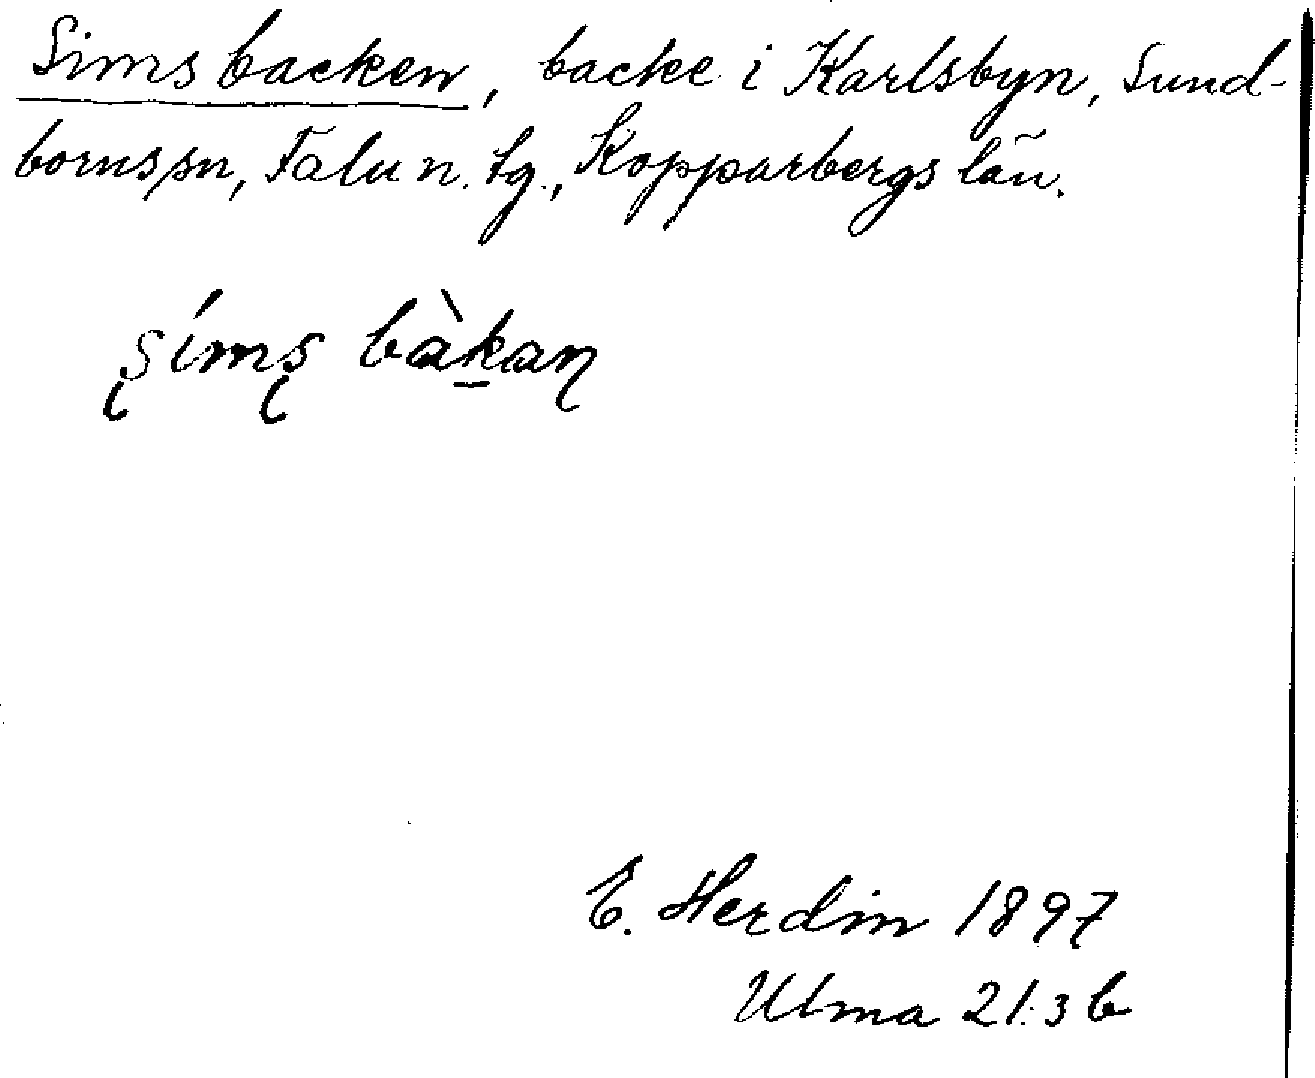 Simsbacken, backe i Karlsbyn, Sund-
bornssn, Falu n. tg., Kopparbergs län.
s̨íms̨ bàk̲aη
E. Herdin 1897
Ulma 21:3 b